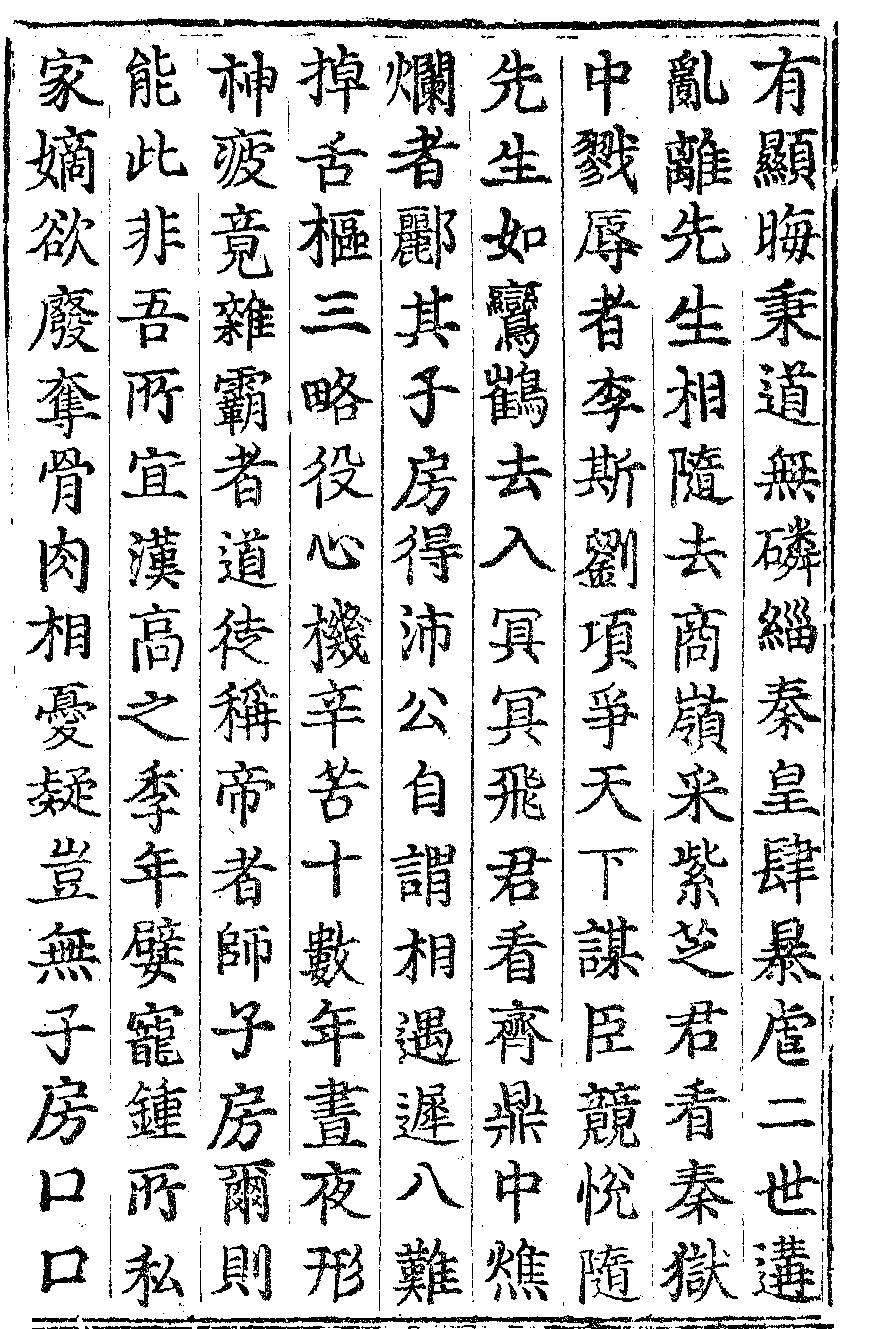 有顯晦秉道無磷緇秦皇肆暴虐二世遘
亂離先生相隨去商嶺采紫芝君看秦獄
中戮辱者李斯劉項爭天下謀臣競悅隨
先生如鸞鶴去入冥冥飛君看齊鼎中燋
爛者酈其子房得沛公自謂相遇遲八難
掉舌樞三略役心機辛苦十數年晝夜形
神疲竟雜霸者道徒稱帝者師子房爾則
能此非吾所宜漢高之季年嬖寵鍾所私
冢嫡欲廢奪骨肉相憂疑豈無子房口口